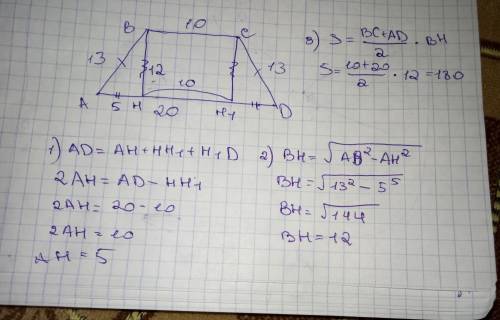 10
B
C
13
12
13
10
A
5
H
20
H₁
D
3) S = (BC+AD)/2 · BH
S = (10+20)/2 · 12 = 180
1) AD = AH + HH₁ + H₁D
2AH = AD - HH₁
2AH = 20 - 10
2AH = 10
AH = 5
2) BH = √(AB² - AH²)
BH = √(13² - 5⁵)
BH = √144
BH = 12